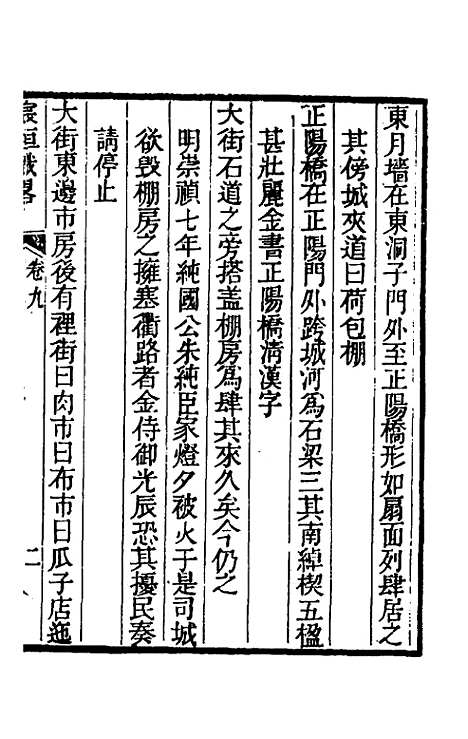 東月墻在東洞子門外至正陽橋形如扇面列肆居之
其傍城夾道曰荷包棚
正陽橋在正陽門外跨城河爲石梁三其南綽楔五楹
甚壯麗金書正陽橋淸漢字
大街石道之旁搭盖棚房爲肆其來久矣今仍之
明崇禎七年純國公朱純臣家燈夕被火于是司城
欲毁棚房之擁塞衢路者金侍御光辰恐其擾民奏
請停止
大街東邊市房後有裡街曰肉市曰布市曰瓜子店迤
宸垣識畧
卷九
二